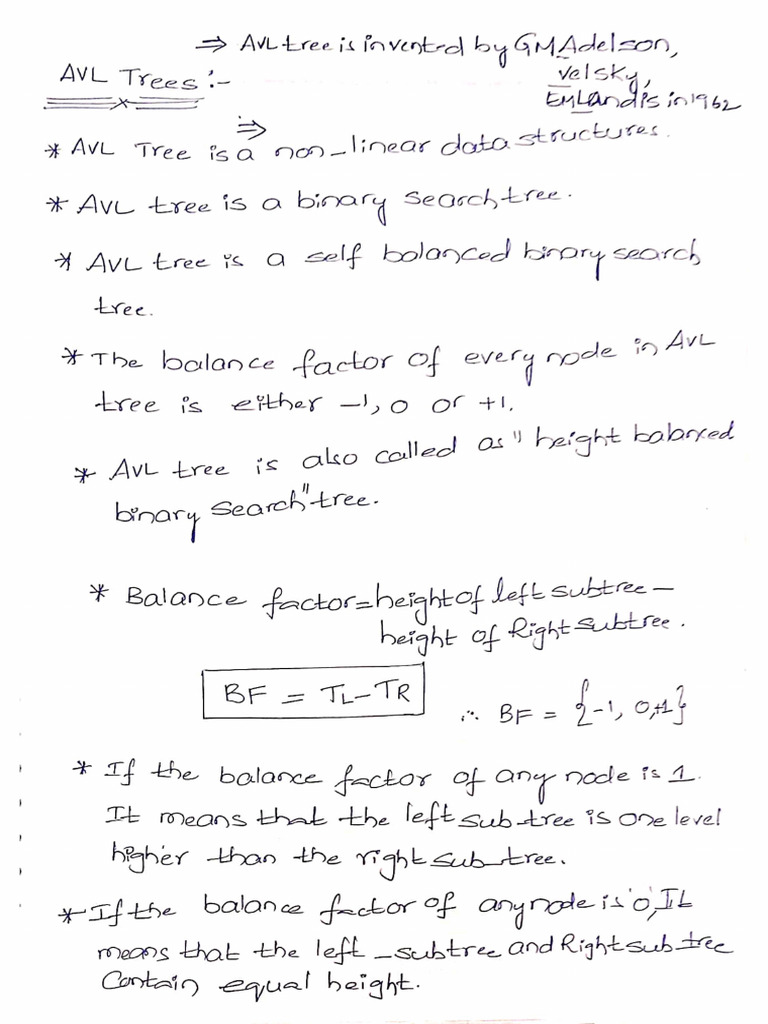 ⇒ AVL tree is invented by GMAdelson,
Velsky,
EMLandis in 1962
AVL Trees :-
⇒
* AVL Tree is a non-linear data structures.
* AVL tree is a binary search tree.
* AVL tree is a self balanced binary search
tree.
* The balance factor of every node in AVL
tree is either -1, 0 or +1.
* AVL tree is also called as "height balanced
binary search" tree.
* Balance factor = height of left subtree -
height of Right subtree.
BF = TL - TR
∴ BF = {-1, 0, +1}
* If the balance factor of any node is 1.
It means that the left sub-tree is one level
higher than the right sub-tree.
* If the balance factor of any node is '0', It
means that the left-subtree and Right sub-tree
Contain equal height.